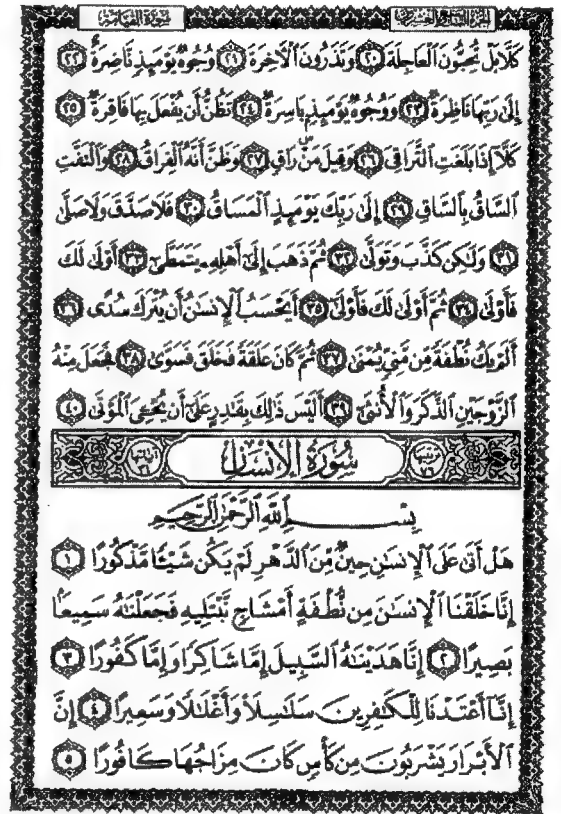 سورة القيامة الجزء التاسع والعشرون
كَلَّا بَلْ تُحِبُّونَ ٱلْعَاجِلَةَ ٢٠ وَتَذَرُونَ ٱلْآخِرَةَ ٢١ وُجُوهٌ يَوْمَئِذٍ نَّاضِرَةٌ ٢٢
إِلَىٰ رَبِّهَا نَاظِرَةٌ ٢٣ وَوُجُوهٌ يَوْمَئِذٍ بَاسِرَةٌ ٢٤ تَظُنُّ أَن يُفْعَلَ بِهَا فَاقِرَةٌ ٢٥
كَلَّآ إِذَا بَلَغَتِ ٱلتَّرَاقِىَ ٢٦ وَقِيلَ مَنْ رَاقٍ ٢٧ وَظَنَّ أَنَّهُ ٱلْفِرَاقُ ٢٨ وَٱلْتَفَّتِ
ٱلسَّاقُ بِٱلسَّاقِ ٢٩ إِلَىٰ رَبِّكَ يَوْمَئِذٍ ٱلْمَسَاقُ ٣٠ فَلَا صَدَّقَ وَلَا صَلَّىٰ
٣١ وَلَٰكِن كَذَّبَ وَتَوَلَّىٰ ٣٢ ثُمَّ ذَهَبَ إِلَىٰٓ أَهْلِهِۦ يَتَمَطَّىٰٓ ٣٣ أَوْلَىٰ لَكَ
فَأَوْلَىٰ ٣٤ ثُمَّ أَوْلَىٰ لَكَ فَأَوْلَىٰٓ ٣٥ أَيَحْسَبُ ٱلْإِنسَٰنُ أَن يُتْرَكَ سُدًى ٣٦
أَلَمْ يَكُ نُطْفَةً مِّن مَّنِىٍّ يُمْنَىٰ ٣٧ ثُمَّ كَانَ عَلَقَةً فَخَلَقَ فَسَوَّىٰ ٣٨ فَجَعَلَ مِنْهُ
ٱلزَّوْجَيْنِ ٱلذَّكَرَ وَٱلْأُنثَىٰٓ ٣٩ أَلَيْسَ ذَٰلِكَ بِقَٰدِرٍ عَلَىٰٓ أَن يُحْۦِىَ ٱلْمَوْتَىٰ ٤٠
ترتيبها ٧٦ سُورَةُ الإِنسَان آياتها ٣١
بِسْمِ ٱللَّهِ ٱلرَّحْمَٰنِ ٱلرَّحِيمِ
هَلْ أَتَىٰ عَلَى ٱلْإِنسَٰنِ حِينٌ مِّنَ ٱلدَّهْرِ لَمْ يَكُن شَيْـًٔا مَّذْكُورًا ١
إِنَّا خَلَقْنَا ٱلْإِنسَٰنَ مِن نُّطْفَةٍ أَمْشَاجٍ نَّبْتَلِيهِ فَجَعَلْنَٰهُ سَمِيعًۢا
بَصِيرًا ٢ إِنَّا هَدَيْنَٰهُ ٱلسَّبِيلَ إِمَّا شَاكِرًا وَإِمَّا كَفُورًا ٣
إِنَّآ أَعْتَدْنَا لِلْكَٰفِرِينَ سَلَٰسِلَا۟ وَأَغْلَٰلًا وَسَعِيرًا ٤ إِنَّ
ٱلْأَبْرَارَ يَشْرَبُونَ مِن كَأْسٍ كَانَ مِزَاجُهَا كَافُورًا ٥